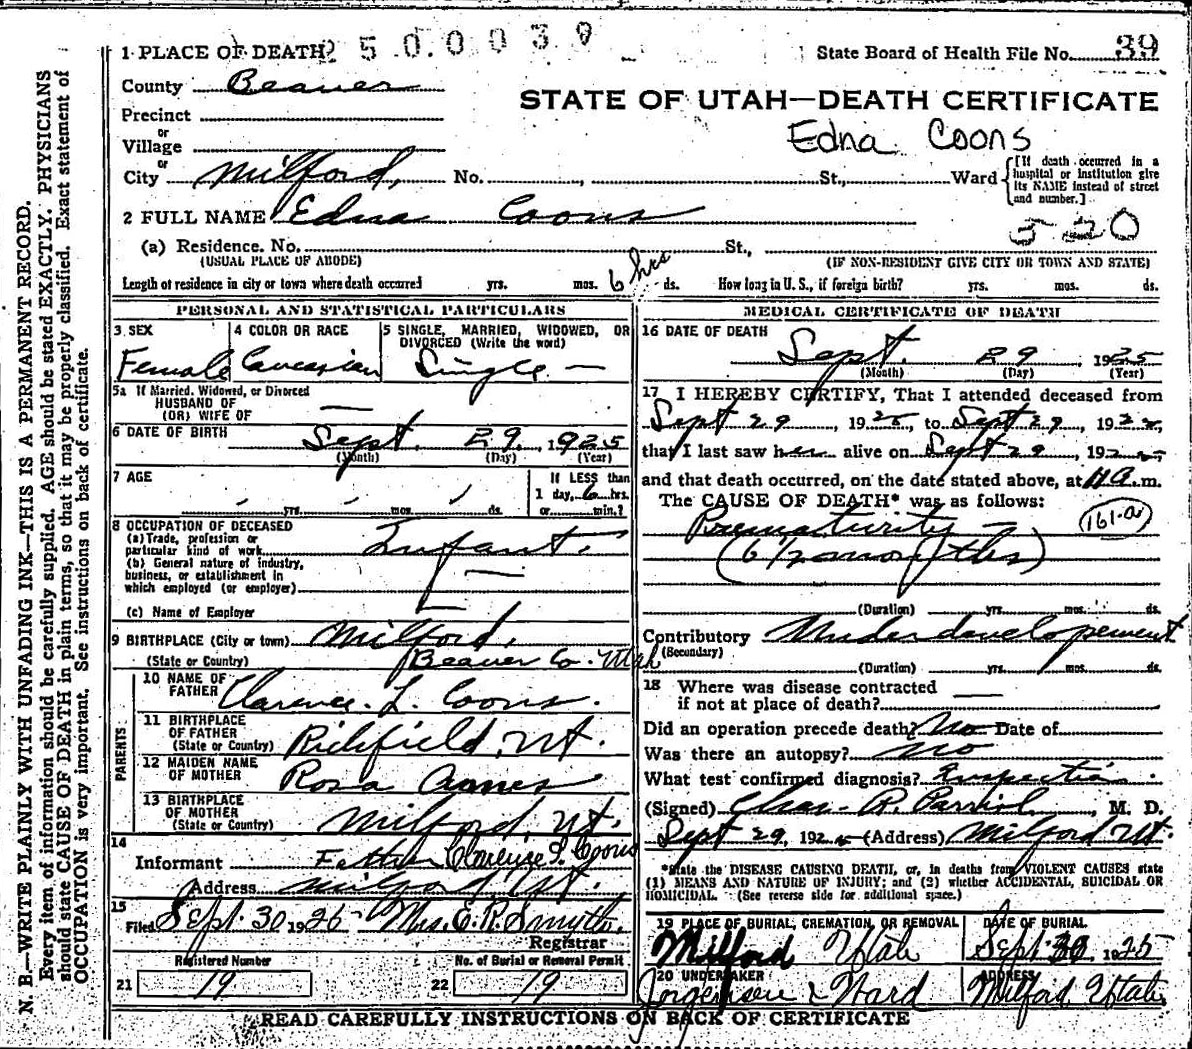 2500039
1 PLACE OF DEATH
State Board of Health File No. 39
County Beaver
STATE OF UTAH—DEATH CERTIFICATE
Precinct
Edna Coons
or
Village
or
City Milford, No. , St., Ward
[If death occurred in a
hospital or institution give
its NAME instead of street
and number.]
2 FULL NAME Edna Coons
520
(a) Residence. No. St.,
(USUAL PLACE OF ABODE)
(IF NON-RESIDENT GIVE CITY OR TOWN AND STATE)
Length of residence in city or town where death occurred yrs. mos. 6 hrs ds. How long in U. S., if foreign birth? yrs. mos. ds.
PERSONAL AND STATISTICAL PARTICULARS
3 SEX
Female
4 COLOR OR RACE
Caucasian
5 SINGLE, MARRIED, WIDOWED, OR
DIVORCED (Write the word)
Single —
5a If Married, Widowed, or Divorced
HUSBAND OF
(OR) WIFE OF —
6 DATE OF BIRTH Sept. 29, 1925
(Month) (Day) (Year)
7 AGE
yrs. mos. ds.
If LESS than
1 day, 6 hrs.
or min.?
8 OCCUPATION OF DECEASED
(a) Trade, profession or
particular kind of work Infant.
(b) General nature of industry,
business, or establishment in
which employed (or employer) —
(c) Name of Employer —
9 BIRTHPLACE (City or town) Milford,
(State or Country) Beaver Co. Utah
PARENTS
10 NAME OF
FATHER Clarence. L. Coons.
11 BIRTHPLACE
OF FATHER
(State or Country) Richfield, Ut.
12 MAIDEN NAME
OF MOTHER Rosa
13 BIRTHPLACE
OF MOTHER
(State or Country) Milford, Ut.
14
Informant Father Clarence L. Coons
Address Milford Ut.
15
Filed Sept. 30 1925 Mrs. E. R. Smyth,
Registrar
Registered Number
21 19
No. of Burial or Removal Permit
22 19
MEDICAL CERTIFICATE OF DEATH
16 DATE OF DEATH
Sept. 29 1925
(Month) (Day) (Year)
17 I HEREBY CERTIFY, That I attended deceased from
Sept 29, 1925, to Sept 29, 1925,
that I last saw her alive on Sept 29, 1925
and that death occurred, on the date stated above, at 11 a.m.
The CAUSE OF DEATH* was as follows:
Prematurity —
161-a
(6 1/2 months)
(Duration) yrs. mos. ds.
Contributory Underdevelopement
(Secondary)
(Duration) yrs. mos. ds.
18 Where was disease contracted
if not at place of death? —
Did an operation precede death? No Date of
Was there an autopsy? No
What test confirmed diagnosis? Inspection.
(Signed) Chas. R. , M. D.
Sept 29, 1925 (Address) Milford Ut.
*State the DISEASE CAUSING DEATH, or, in deaths from VIOLENT CAUSES state
(1) MEANS AND NATURE OF INJURY; and (2) whether ACCIDENTAL, SUICIDAL OR
HOMICIDAL. (See reverse side for additional space.)
19 PLACE OF BURIAL, CREMATION, OR REMOVAL
Milford Utah
DATE OF BURIAL
Sept. 30 1925
20 UNDERTAKER
Jorgensen & Ward
ADDRESS
Milford, Utah,
READ CAREFULLY INSTRUCTIONS ON BACK OF CERTIFICATE
N. B.—WRITE PLAINLY WITH UNFADING INK—THIS IS A PERMANENT RECORD.
Every item of information should be carefully supplied. AGE should be stated EXACTLY. PHYSICIANS
should state CAUSE OF DEATH in plain terms, so that it may be properly classified. Exact statement of
OCCUPATION is very important. See instructions on back of certificate.